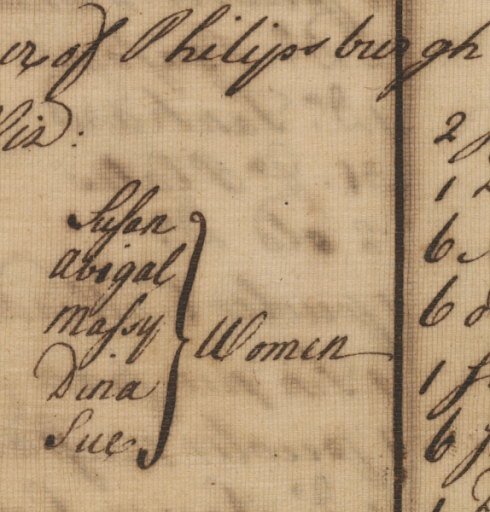 of Philipsburgh
Viz:
Susan
Abigal
Massy
Dina
Sue
Women
2
1
6
6
1
6
1